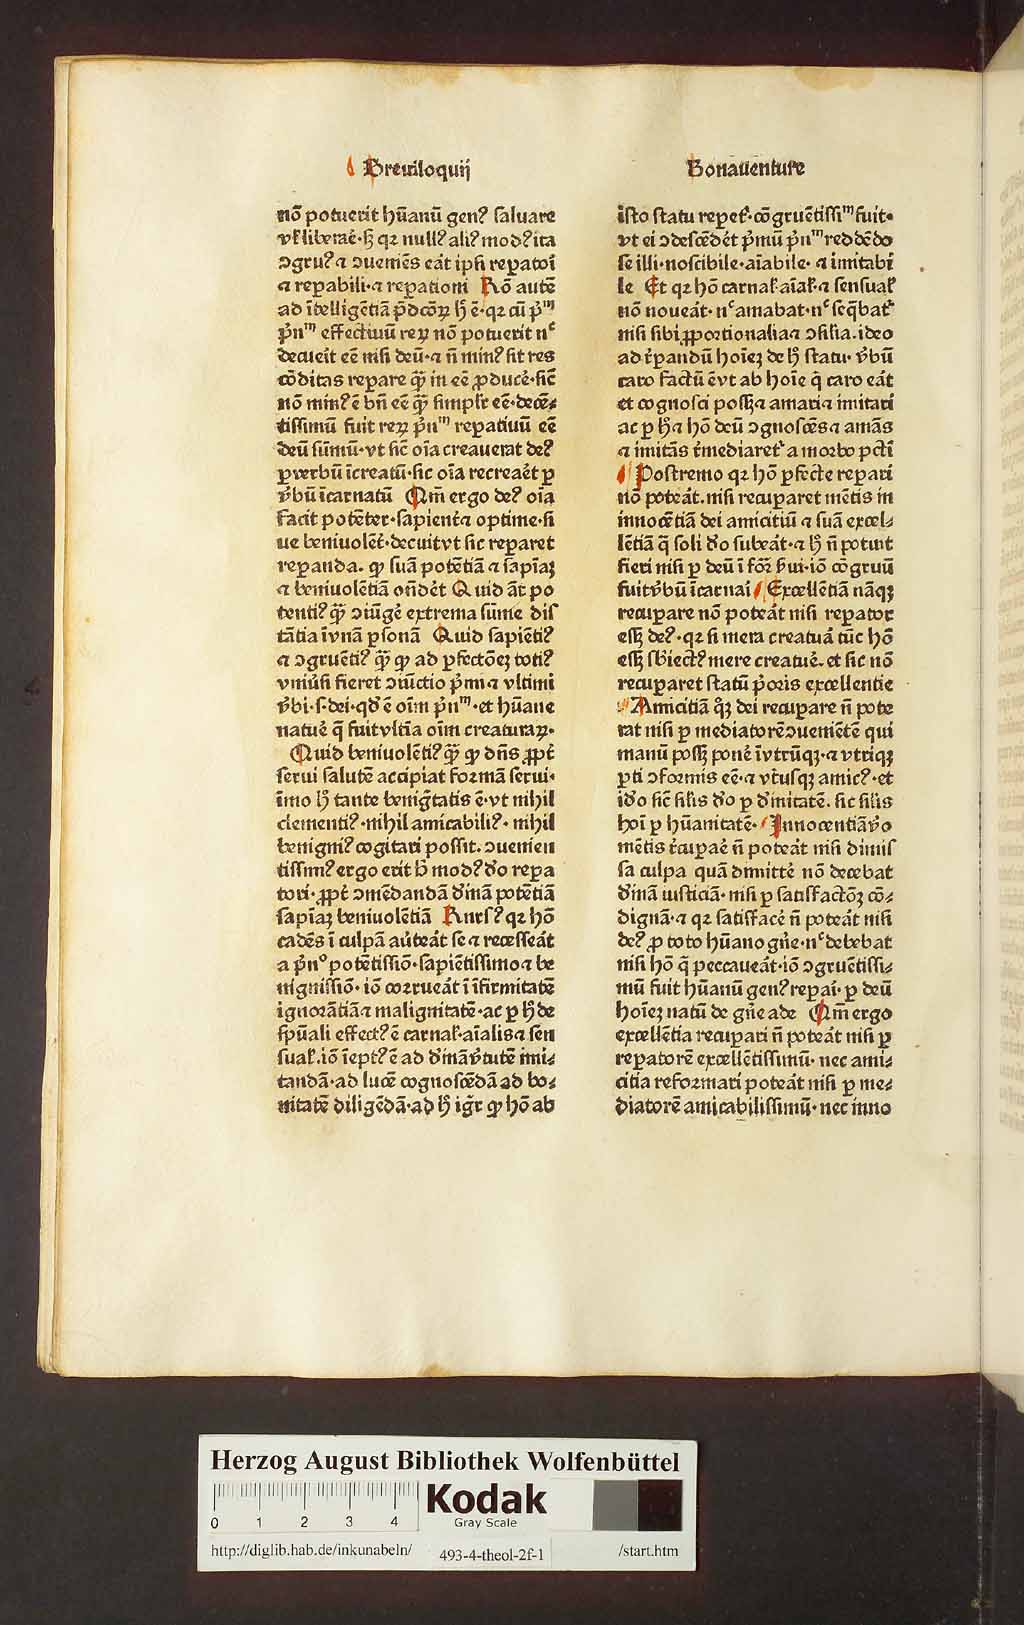 Breuiloquij
nō potuerit hūanū genꝰ saluare
vl̕ liberar̄e· sꝫ qꝛ nullꝰ aliꝰ modꝰ ita
ɔgruꝰ ⁊ ɔueniēs eāt ipsi reꝑatoī
⁊ reꝑabili· ⁊ reꝑationi Rō autē
ad ītelligētiā p̄dcōꝝ h̄ ē· qꝛ cū p̄ᵐ
p̄nᵐ effectiuū reꝝ nō potuerit nᶜ
decueit eē nisi deū· ⁊ n̄ minꝰ sit res
cōditas reꝑare qꝫ̄ in eē ꝓducē· sic̄
nō minꝰ ē bn̄ eē qꝫ̄ simpl̕r eē· decē⸗
tissimū fuit reꝝ p̄nᵐ reꝑatiuū eē
deū sūmū· vt sic̄ oīa creauerat deꝰ
ꝑ verbū īcreatū· sic oīa recreaēt ꝑ
v̄bū īcarnatū Qm̄ ergo deꝰ oīa
facit potēter· sapient̄⁊ optime· si
ue beniuolēt̄· decuit vt sic reꝑaret
reꝑanda· ꝙ suā potētiā ⁊ sapīaꝫ
⁊ beniuolētiā on̄dēt Quid āt po
tentiꝰ qꝫ̄ ɔiūgē extrema sūme dis
tātia ī vnā ꝑsonā Quid sapiētiꝰ
⁊ ɔgruētiꝰ qꝫ̄ ꝙ ad ꝑfectōeꝫ totiꝰ
vniūsi fieret ɔiūctio p̄mi ⁊ vltimi
v̄bi· s· dei· qd̄ ē oīm p̄nᵐ· et hūane
naturē q̄ fuit vltīa oīm creaturaꝝ·
Quid beniuolētiꝰ qꝫ̄ ꝙ dn̄s ꝓpt̄
serui salutē accipiat formā serui·
īmo h̄ tante benigtatis ē· vt nihil
clementiꝰ· nihil amicabiliꝰ· nihil
benigniꝰ cogitari possit· ɔuenien
tissimꝰ ergo erit h̄ modꝰ do̕ reꝑa
tori· ꝓpt̄ ɔmēdandā d̕inā potētiā
sapīaꝫ beniuolētiā Rursꝰ qꝛ hō
cadēs ī culpā aūteāt se ⁊ recesseāt
a p̄nᵒ potētissiō· sapiētissimo ⁊ be
nignissiō· iō corrueāt ī īfirmitatē
ignorātiā ⁊ malignitatē· ac ꝑ h̄ de
spūali effectꝰ ē carnal̕· aīalis ⁊ sen
sual̕· iō īeptꝰ ē ad d̕inā v̄tutē imi⸗
tandā· ad lucē cognoscēdā ad bo⸗
nitatē diligēdā· ad h̄ igr̄ ꝙ hō ab
Bonauenture
isto statu reꝑet̕· cōgruētissiᵐ fuit·
vt ei ɔdescēdēt p̄mū p̄nᵐ reddēdo
se illi· noscibile· aīabile· ⁊ imitabi
le Et qꝛ hō carnal̕· aīal̕· ⁊ sensual̕
nō noueāt· nᶜ amabat· nᶜ seq̄bat̕
nisi sibi ꝓportionalia ⁊ ɔsilia· ideo
ad r̄ꝑandū hoīeꝫ de h̄ statu· v̄bū
caro factū ē vt ab hoīe q̄ caro eāt
et cognosci possꝫ ⁊ amari ⁊ imitari
ac ꝑ h̄ ⁊ hō deū ɔgnoscēs ⁊ amās
⁊ imitās r̄mediaret̕ a morbo pcti
Postremo qꝛ hō ꝑfecte reꝑari
nō poteāt· nisi recuꝑaret mētis in
innocētiā dei amicitiū ⁊ suā excel⸗
lētiā q̄ soli do̕ subeāt· ⁊ h̄ n̄ potuit
fieri nisi ꝑ deū ī for̄ s̄ui· iō cōgruū
fuit v̄bū īcarnai Excellētiā nāqꝫ
recuꝑare nō poteāt nisi reꝑator
essꝫ deꝰ· qꝛ si mera creatura tūc hō
essꝫ sb̄iectꝰ mere creaturē· et sic nō
recuꝑaret statū p̄oris excellentie
Amicitiā qꝫ̄ dei recuꝑare n̄ pote
rat nisi ꝑ mediatorē ɔuemētē qui
manū possꝫ ponē ī vtrūqꝫ· ⁊ vtriqꝫ
ꝑti ɔformis eē· ⁊ vt̄usqꝫ amicꝰ· et
id̕o sic̄ silis d̕o ꝑ d̕initatē· sic silis
hoī ꝑ hūanitatē· Innocentiā v̄o
mētis r̄cuꝑaē n̄ poteāt nisi dimis
sa culpa quā dimittē nō decebat
d̕inā iusticiā· nisi ꝑ satisfactōꝫ cō⸗
dignā· ⁊ qꝛ satisfacē n̄ poteāt nisi
deꝰ ꝓ toto hūano gn̄e· nᶜ debebat
nisi hō q̄ peccaueāt· iō ɔgruētissi⸗
mū fuit hūanū genꝰ reꝑai· ꝑ deū
hoīeꝫ natū de gn̄e ade Qm̄ ergo
excellētia recuꝑari n̄ poteāt nisi ꝑ
reꝑatorē excellētissimū· nec ami⸗
citia reformari poteāt nisi ꝑ me⸗
diatorē amicabilissimū· nec inno
Herzog August Bibliothek Wolfenbüttel
0 1 2 3 4
Kodak
Gray Scale
http://diglib.hab.de/inkunabeln/ 493-4-theol-2f-1 /start.htm